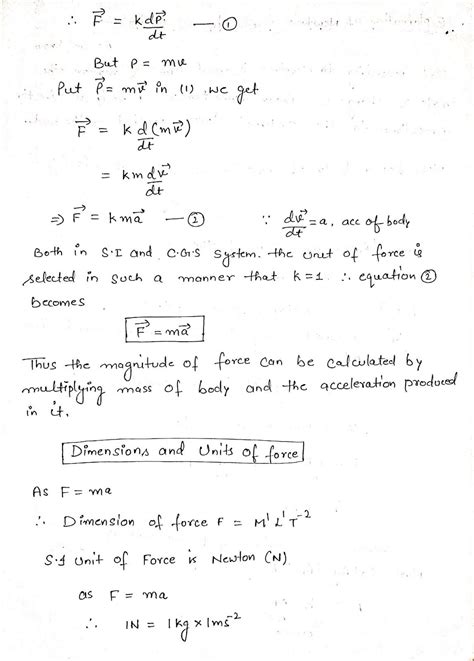 ∴ F⃗ = k dP⃗/dt — ①
But P = mv
Put P⃗ = mv⃗ in (1) we get
F⃗ = k d(mv⃗)/dt
= km dv⃗/dt
⇒ F⃗ = kma⃗ — ② ∵ dv⃗/dt = a, acc of body
Both in S.I and C.G.S system. the unit of force is
selected in such a manner that k=1 ∴ equation ②
becomes
F⃗ = ma⃗
Thus the magnitude of force can be calculated by
multiplying mass of body and the acceleration produced
in it.
Dimensions and Units of force
As F = ma
∴ Dimension of force F = M¹L¹T⁻²
S.I unit of Force is Newton (N)
as F = ma
∴ 1N = 1kg × 1ms⁻²